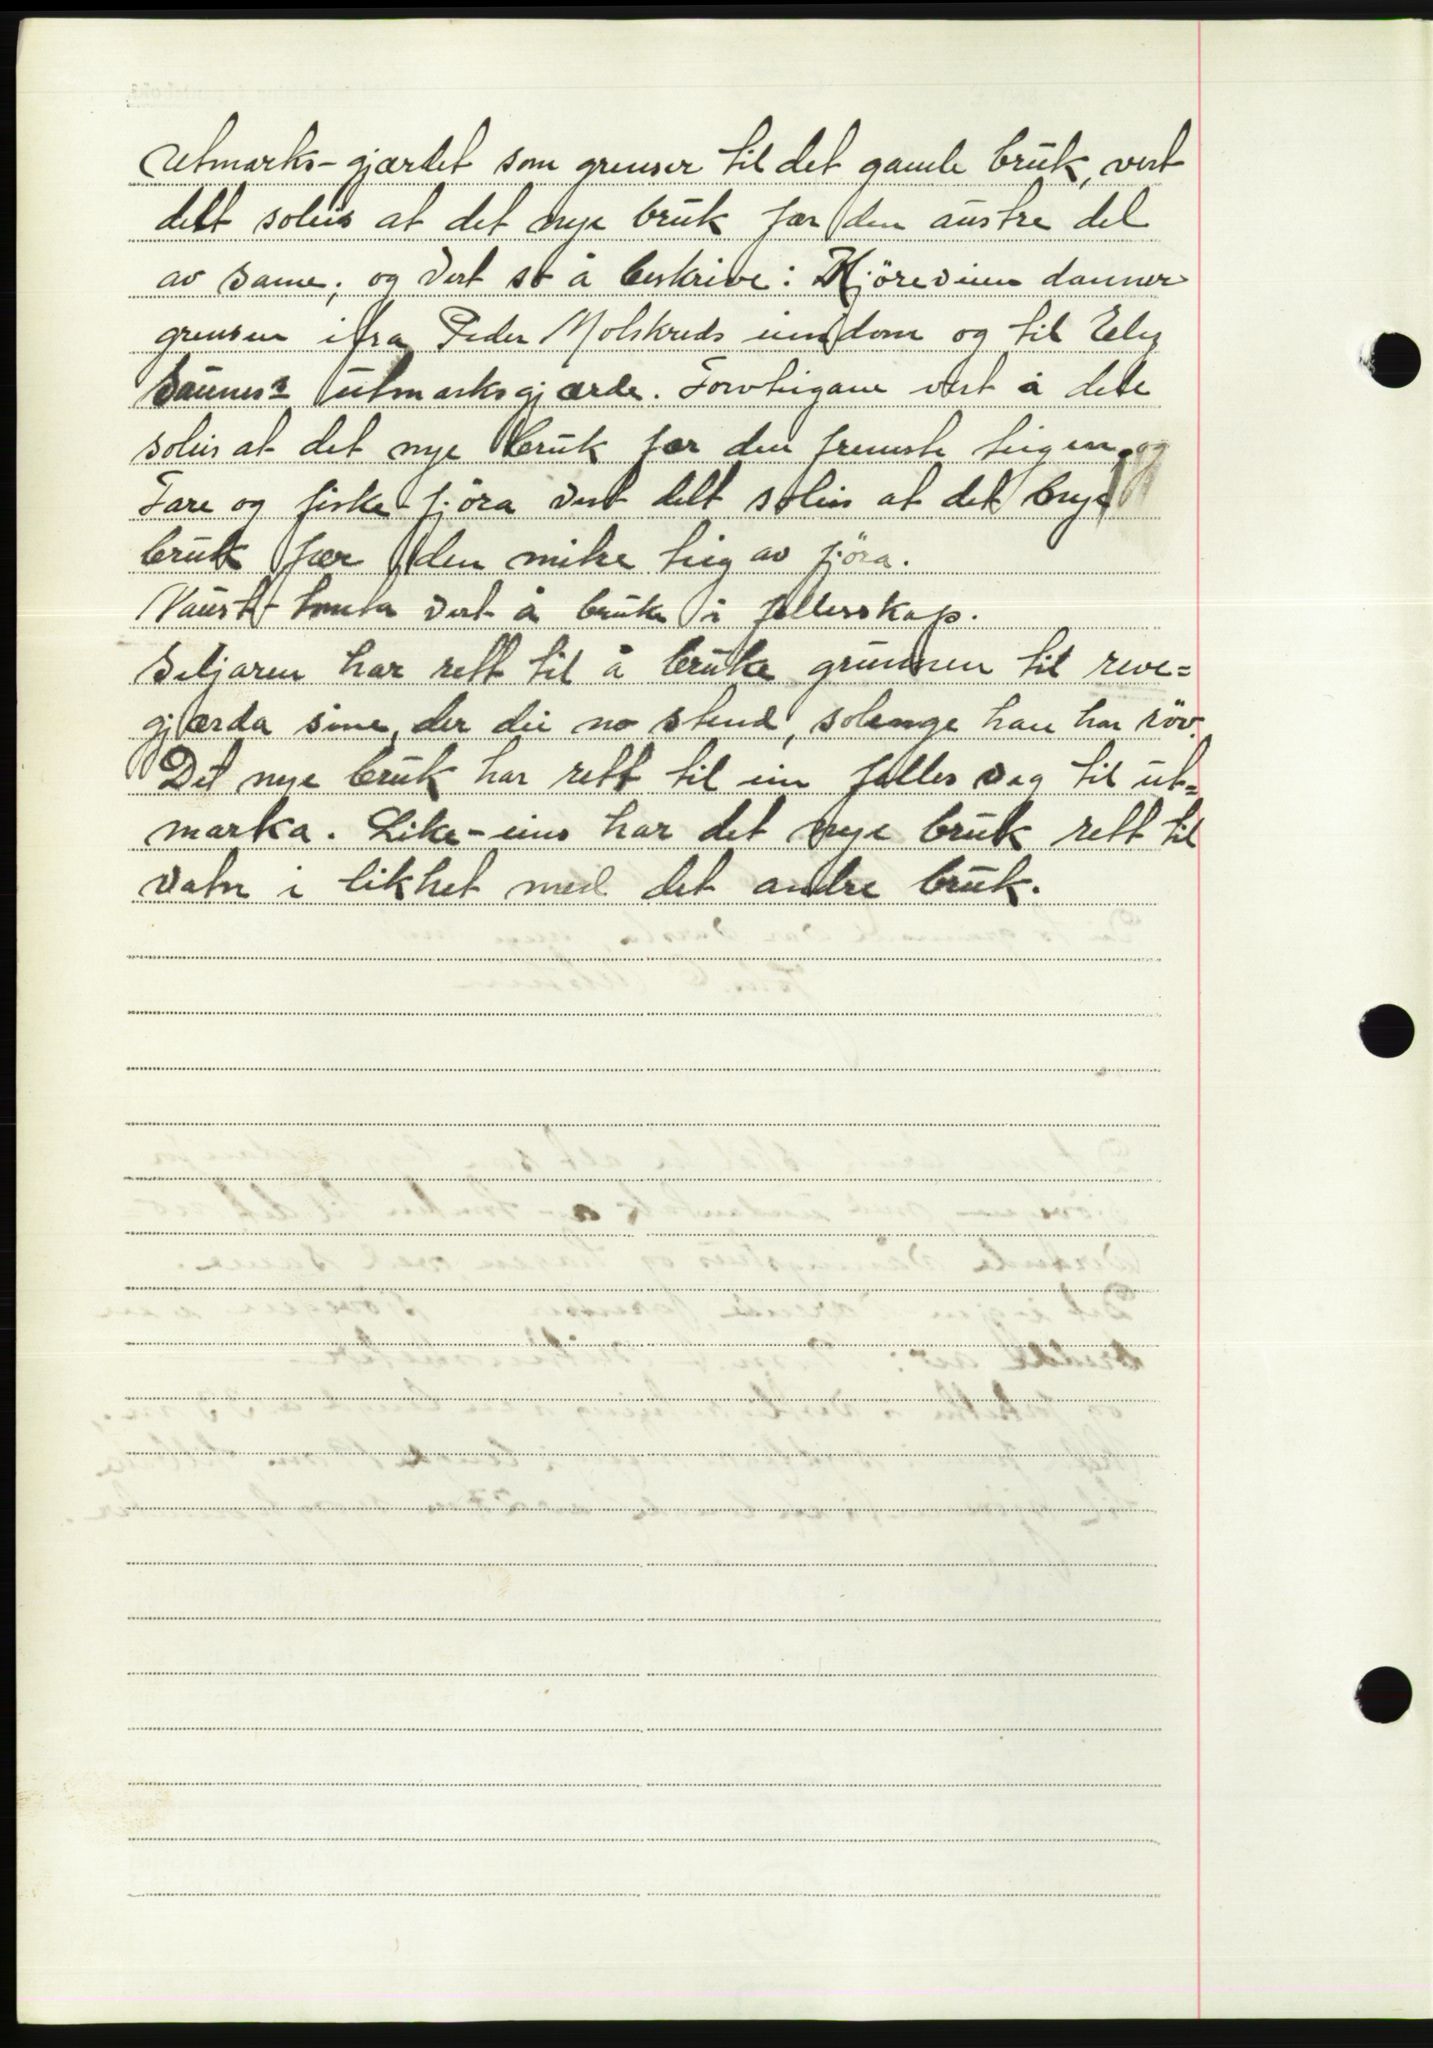 Utmarks-gjærdet som grenser til det gamle bruk, vert
delt soleis at det nye bruk fær den austre del
av same, og vert so å beskrive: Kjöreveien danner
grensen ifra Peder Molskreds eiendom og til
Saunes's utmarksgjærde. vert å dele
soleis at det nye bruk fær den fremste teigen og
Tare og fiske-fjöra vert delt soleis at det nye
bruk fær den teig av fjöra.
Naust-tomta vert å bruke i fellesskap.
Seljaren har rett til å bruke grunnen til reve=
gjærda sine, der dei no stend, solenge han har röv.
Det nye bruk har rett til ein felles veg til ut=
marka. Like-eins har det nye bruk rett til
vatn i likhet med det andre bruk.